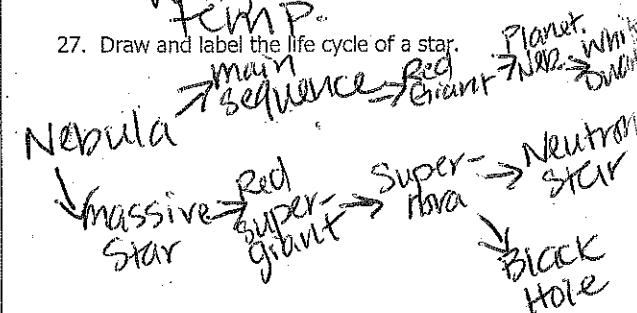 temp.
27. Draw and label the life cycle of a star.
Nebula → main sequence → Red Giant → Planet. Neb. → Whit Dwar
→ massive star → Red super-giant → Super-nova → Neutron star
→ Black Hole